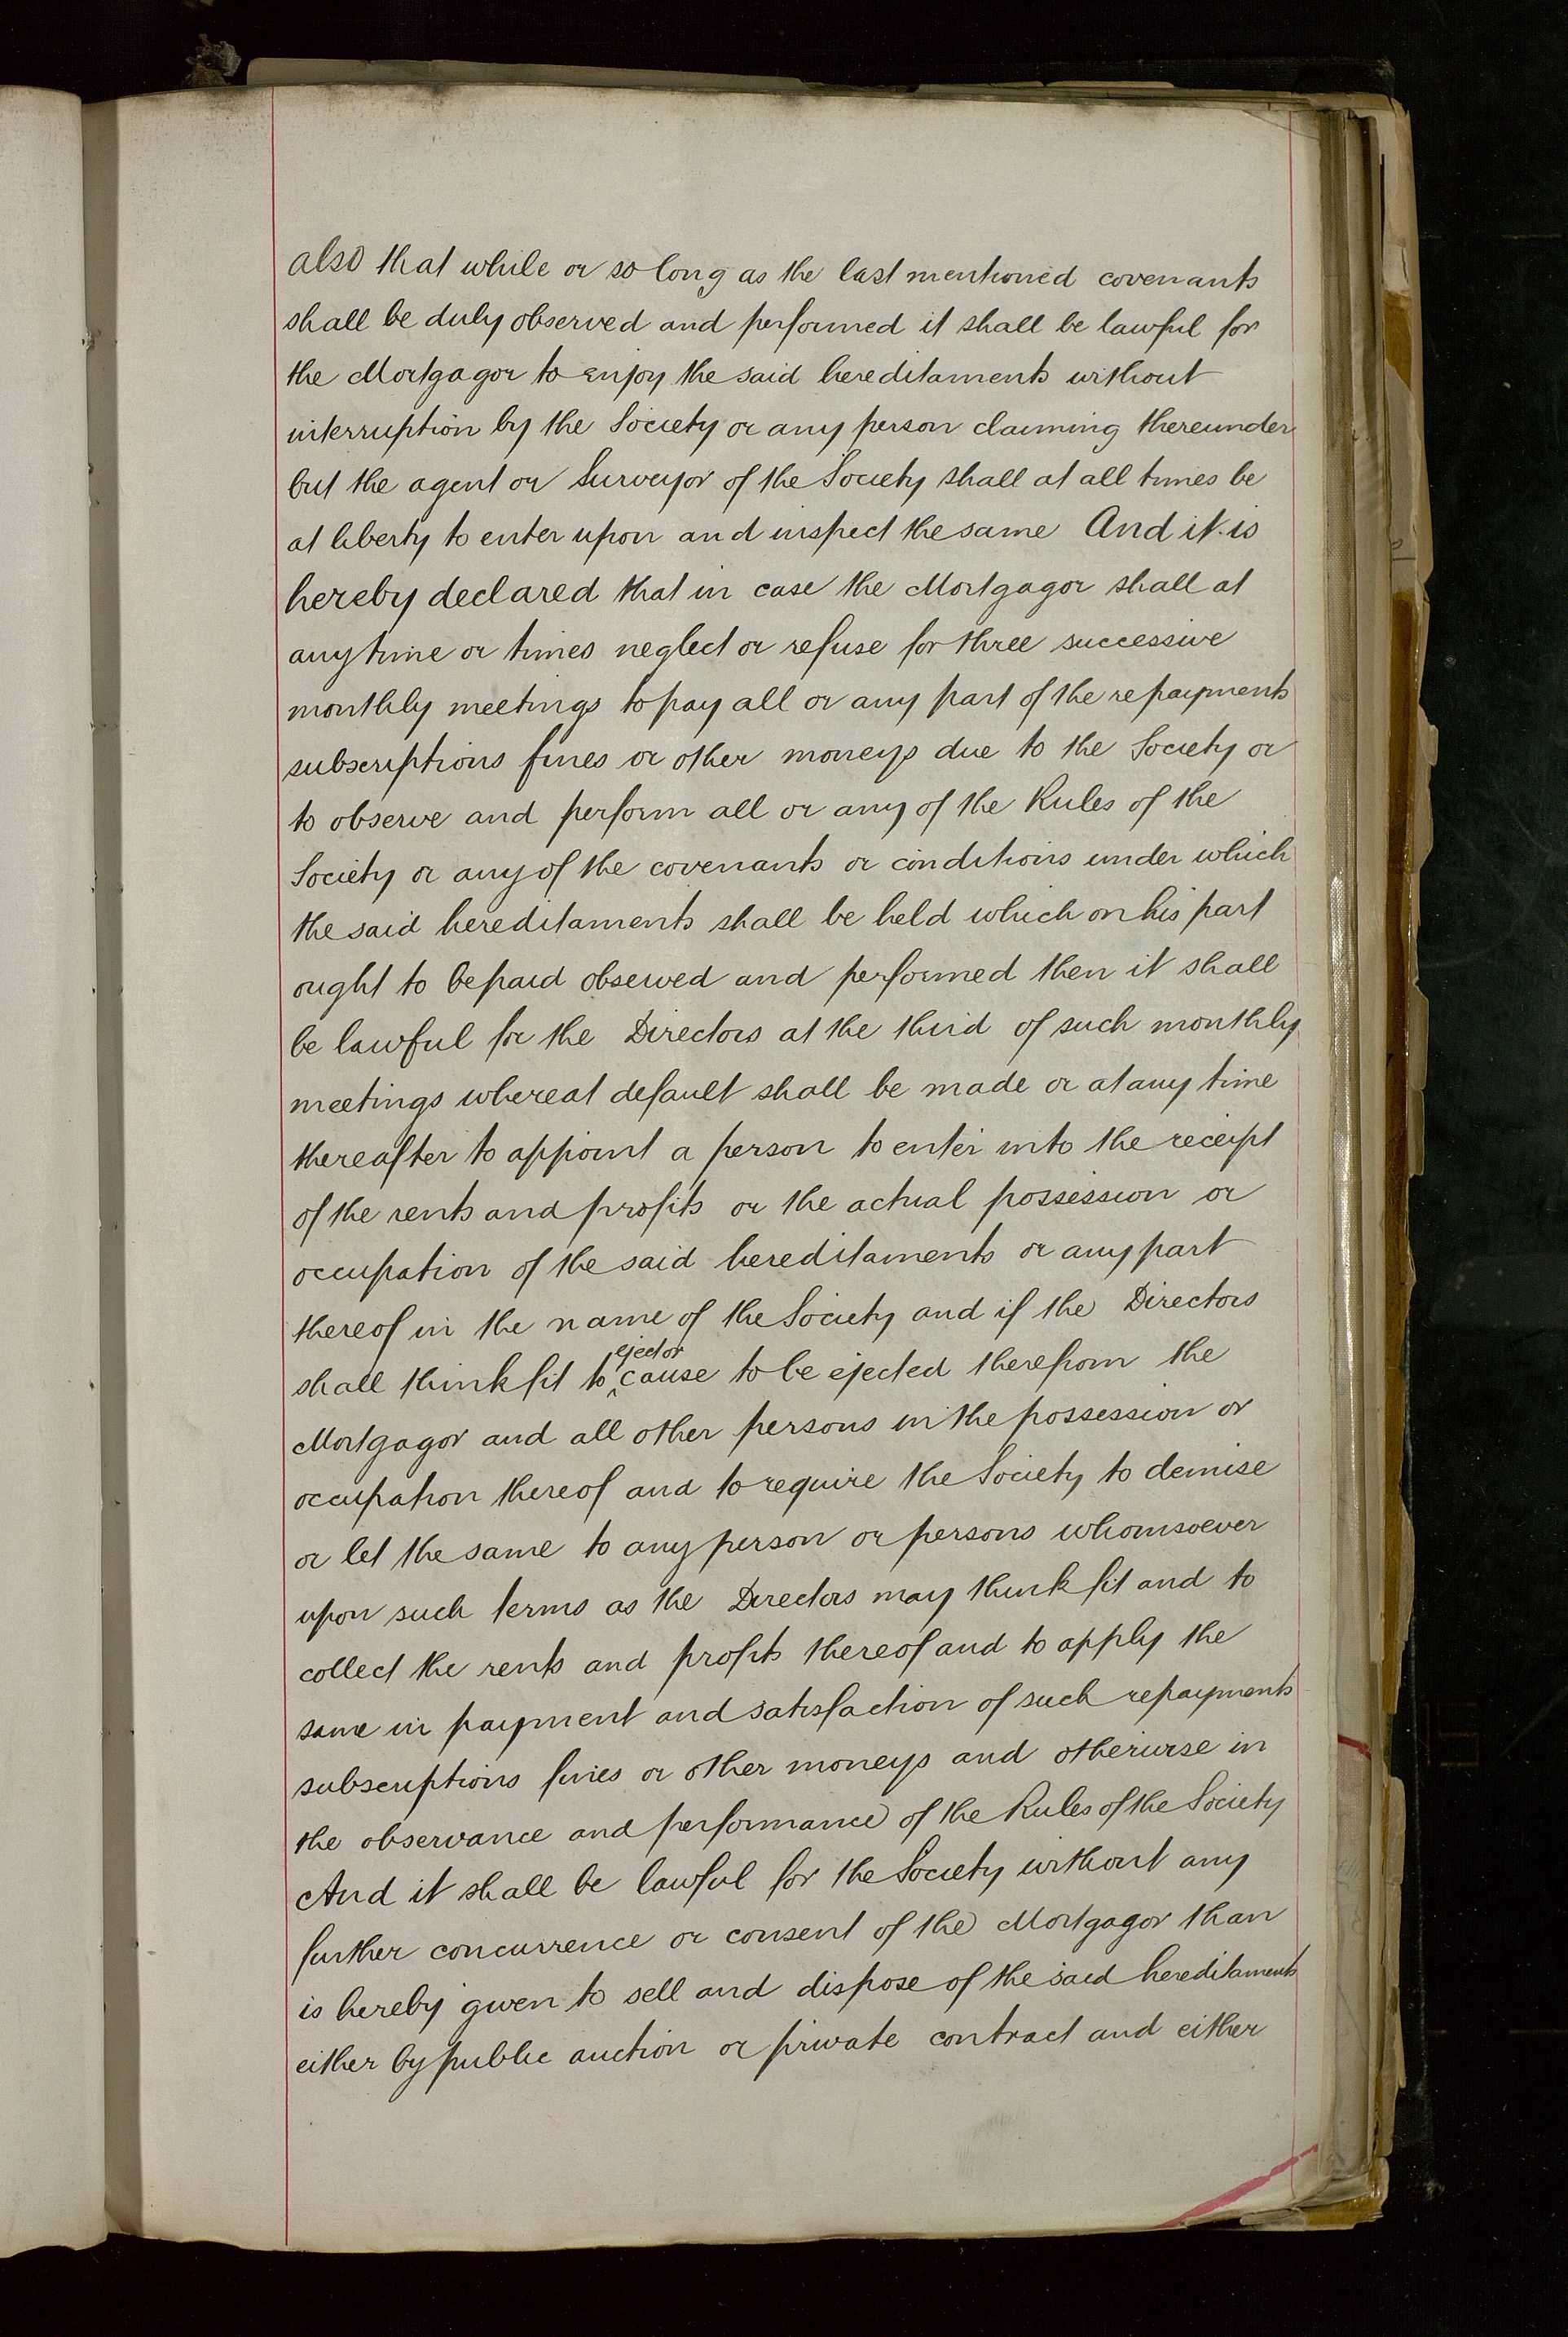 also that while or so long as the last mentioned covenants
shall be duly observed and performed it shall be lawful for
the Mortgagor to enjoy the said hereditaments without
interruption by the Society or any person claiming thereunder
but the agent or Surveyor of the Society shall at all times be
at liberty to enter upon and inspect the same And it is
hereby declared that in case the Mortgagor shall at
any time or times neglect or refuse for three successive
monthly meetings to pay all or any part of the repayments
subscriptions fines or other moneys due to the Society or
to observe and perform all or any of the Rules of the
Society or any of the covenants or conditions under which
the said hereditaments shall be held which on his part
ought to be paid observed and performed then it shall
be lawful for the Directors at the third of such monthly
meetings whereat default shall be made or at any time
thereafter to appoint a person to enter into the receipt
of the rents and profits or the actual possession or
occupation of the said hereditaments or any part
thereof in the name of the Society and if the Directors
shall think fit to eject or cause to be ejected therefrom the
Mortgagor and all other persons in the possession or
occupation thereof and to require the Society to demise
or let the same to any person or persons whomsoever
upon such terms as the Directors may think fit and to
collect the rents and profits thereof and to apply the
same in payment and satisfaction of such repayments
subscriptions fines or other moneys and otherwise in
the observance and performance of the Rules of the Society
And it shall be lawful for the Society without any
further concurrence or consent of the Mortgagor than
is hereby given to sell and dispose of the said hereditaments
either by public auction or private contract and either